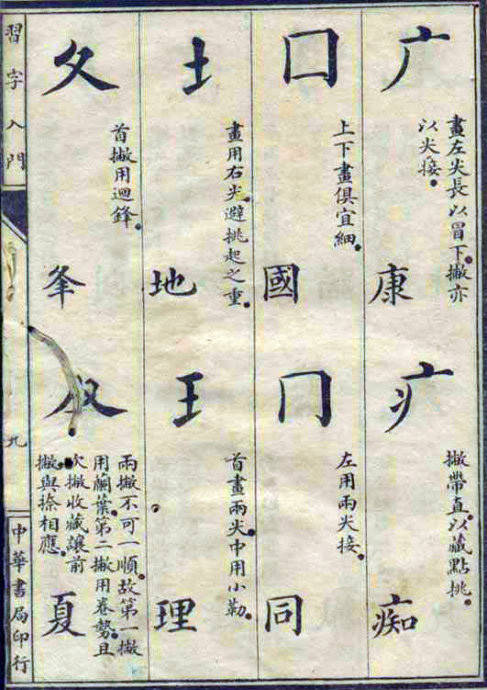 广
畫左尖長以冒下。撇亦
以尖接。
康
疒
撇帶直以藏點挑。
痴
囗
上下畫俱宜細。
國
冂
左用兩尖接。
同
土
畫用右尖。避挑起之重。
地
王
首畫兩尖中用小勒。
理
夂
首撇用迴鋒。
夆
兩撇不可一順。故第一撇
用蘭葉。第二撇用卷勢。且
次撇收藏讓前
撇與捺相應。
夏
習字入門
九
中華書局印行